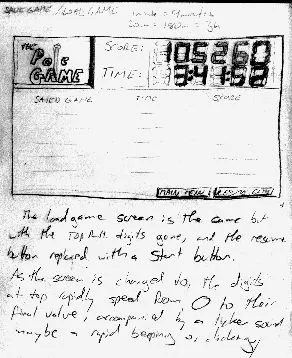 SAVE GAME / LOAD GAME
THE
POLE
GAME
SCORE: 105260
TIME: 3:41:52
SAVED GAME TIME SCORE
MAIN MENU RESUME GAME
The load game screen is the same but
with the TOP R.H. digits gone, and the resume
button replaced with a Start button.
As the screen is changed to, the digits
at top rapidly speed from 0 to their
final value, accompanied by a sound
maybe a rapid beeping or clicking